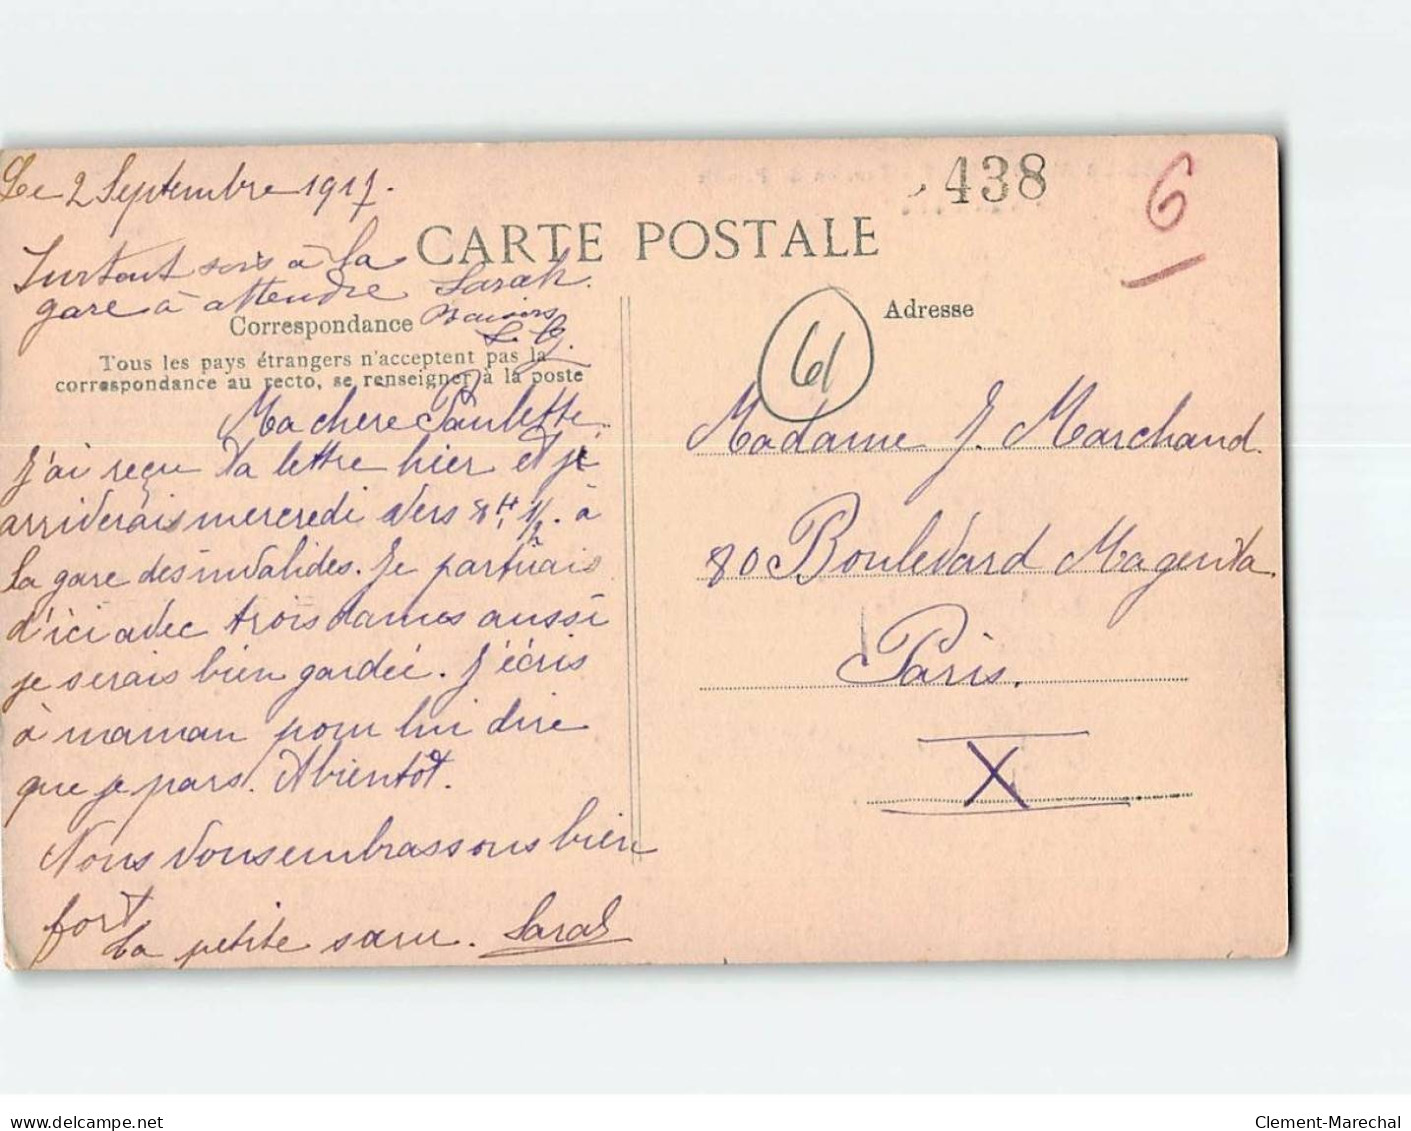 Le 2 Septembre 1917.
438
6
CARTE POSTALE
Surtout sois à la
gare à attendre Sarah.
Baisers
Correspondance
Tous les pays étrangers n'acceptent pas la
correspondance au recto, se renseigner à la poste
Ma chere Paulette
J'ai reçu ta lettre hier et je
arriverais mercredi vers 8H 1/2. à
la gare des invalides. Je partirais
d'ici avec trois dames aussi
je serais bien gardée. J'écris
à maman pour lui dire
que je pars. A bientôt.
Nous vous embrassons bien
fort
La petite sœur. Sarah
61
Adresse
Madame J. Marchand.
80 Boulevard Magenta.
Paris.
X
www.delcampe.net
Clement-Marechal